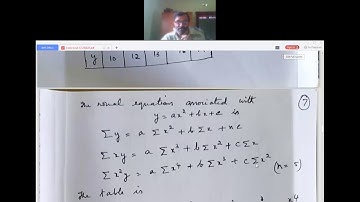 y 10 12 13
The normal equations associated with
y = ax² + bx + c is
Σy = a Σx² + b Σx + nc
Σxy = a Σx³ + b Σx² + c Σx
Σx²y = a Σx⁴ + b Σx³ + c Σx² (n = 5)
7
The table is
x⁴